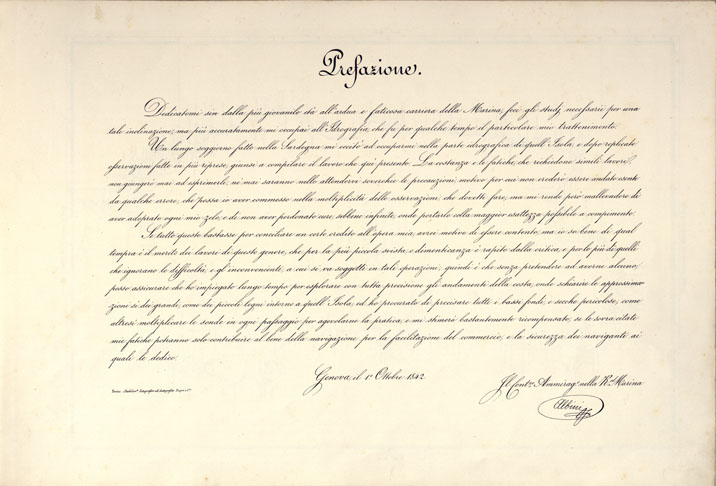 Prefazione.
Dedicatomi sin dalla più giovanile età all'ardua e faticosa carriera della Marina, feci gli studj necessarii per una
tale inclinazione, ma più accuratamente mi occupai all'Idrografia, che fu per qualche tempo il particolare mio trattenimento.
Un lungo soggiorno fatto nella Sardegna mi eccitò ad occuparmi nella parte idrografica di quell'Isola, e dopo replicate
osservazioni fatte in più riprese, giunsi a compilare il lavoro che qui presento. La costanza e le fatiche, che richiedono simili lavori,
non giungerò mai ad esprimerle, ne mai saranno nelle attendervi soverchie le precauzioni, motivo per cui non crederò essere andato esente
da qualche errore, che possa io aver commesso nella moltiplicità delle osservazioni, che dovetti fare, ma mi rende però mallevadore di
aver adoprato ogni mio zelo, e di non aver perdonato cure, sebbene infinite, onde portarlo colla maggior esattezza possibile a compimento.
Se tutto questo bastasse per conciliare un certo credito all'opera mia, avrei motivo di essere contento, ma io so bene di qual
tempra è il merito dei lavori di questo genere, che per la più piccola svista, e dimenticanza è rapito dalla critica, e per lo più di quelli
che ignorano le difficoltà, e gl'inconvenienti, a cui si va soggetti in tale operazioni; quindi è che senza pretendere ad averne alcuno,
posso assicurare che ho impiegato lungo tempo per esplorare con tutta precisione gli andamenti della costa, onde schiarire le approssima-
zioni sì dei grandi, come dei piccoli legni intorno a quell'Isola, ed ho procurato di precisare tutti i bassi fondi, e secche pericolose, come
altresì moltiplicare le sonde in ogni passaggio per agevolarne la pratica, e mi stimerò bastantemente ricompensato, se le sovra citate
mie fatiche potranno solo contribuire al bene della navigazione, per la facilitazione del commercio, e la sicurezza dei naviganti ai
quali le dedico.
Genova, il 1º Ottobre 1842.
Il Contr. Ammirag. nella Rª Marina
Albini